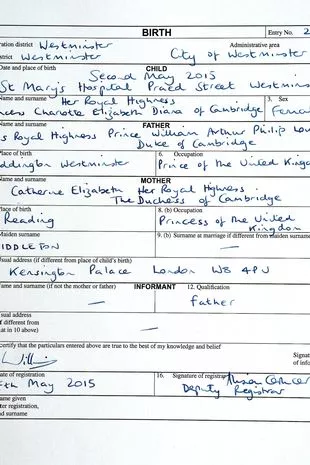 BIRTH
Entry No. 2
ration district Westminster
Administrative area
strict Westminster
City of Westminster
CHILD
Date and place of birth
Second May 2015
St Mary's Hospital Praed Street Westmins
Name and surname
Her Royal Highness
3. Sex
cess Charlotte Elizabeth Diana of Cambridge
Female
FATHER
Name and surname
s Royal Highness Prince William Arthur Philip Lou
Duke of Cambridge
Place of birth
6. Occupation
ddington Westminster
Prince of the United Kingd
MOTHER
Name and surname
Catherine Elizabeth Her Royal Highness
The Duchess of Cambridge
Place of birth
8. (b) Occupation
Reading
Princess of the United
Kingdom
Maiden surname
9. (b) Surname at marriage if different from maiden surname
IDDLETON
—
Usual address (if different from place of child's birth)
Kensington Palace London W8 4PU
INFORMANT
Name and surname (if not the mother or father)
12. Qualification
—
Father
sual address
if different from
at in 10 above)
—
certify that the particulars entered above are true to the best of my knowledge and belief
Willi
Signat
of infor
ate of registration
16. Signature of registrar
th May 2015
Deputy Registrar
ame given
ter registration,
nd surname